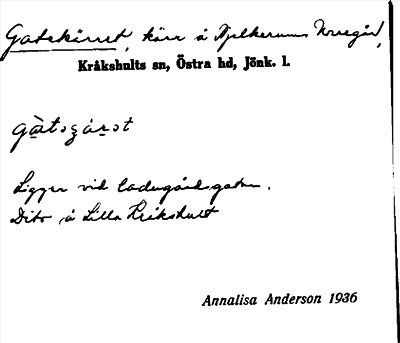 Gatekärret, kärr å Hjelkerums Norregård,
Kråkshults sn, Östra hd, Jönk. l.
Ligger vid ladugårdsgatan.
Dito å Lilla Kråkshult
Annalisa Anderson 1936